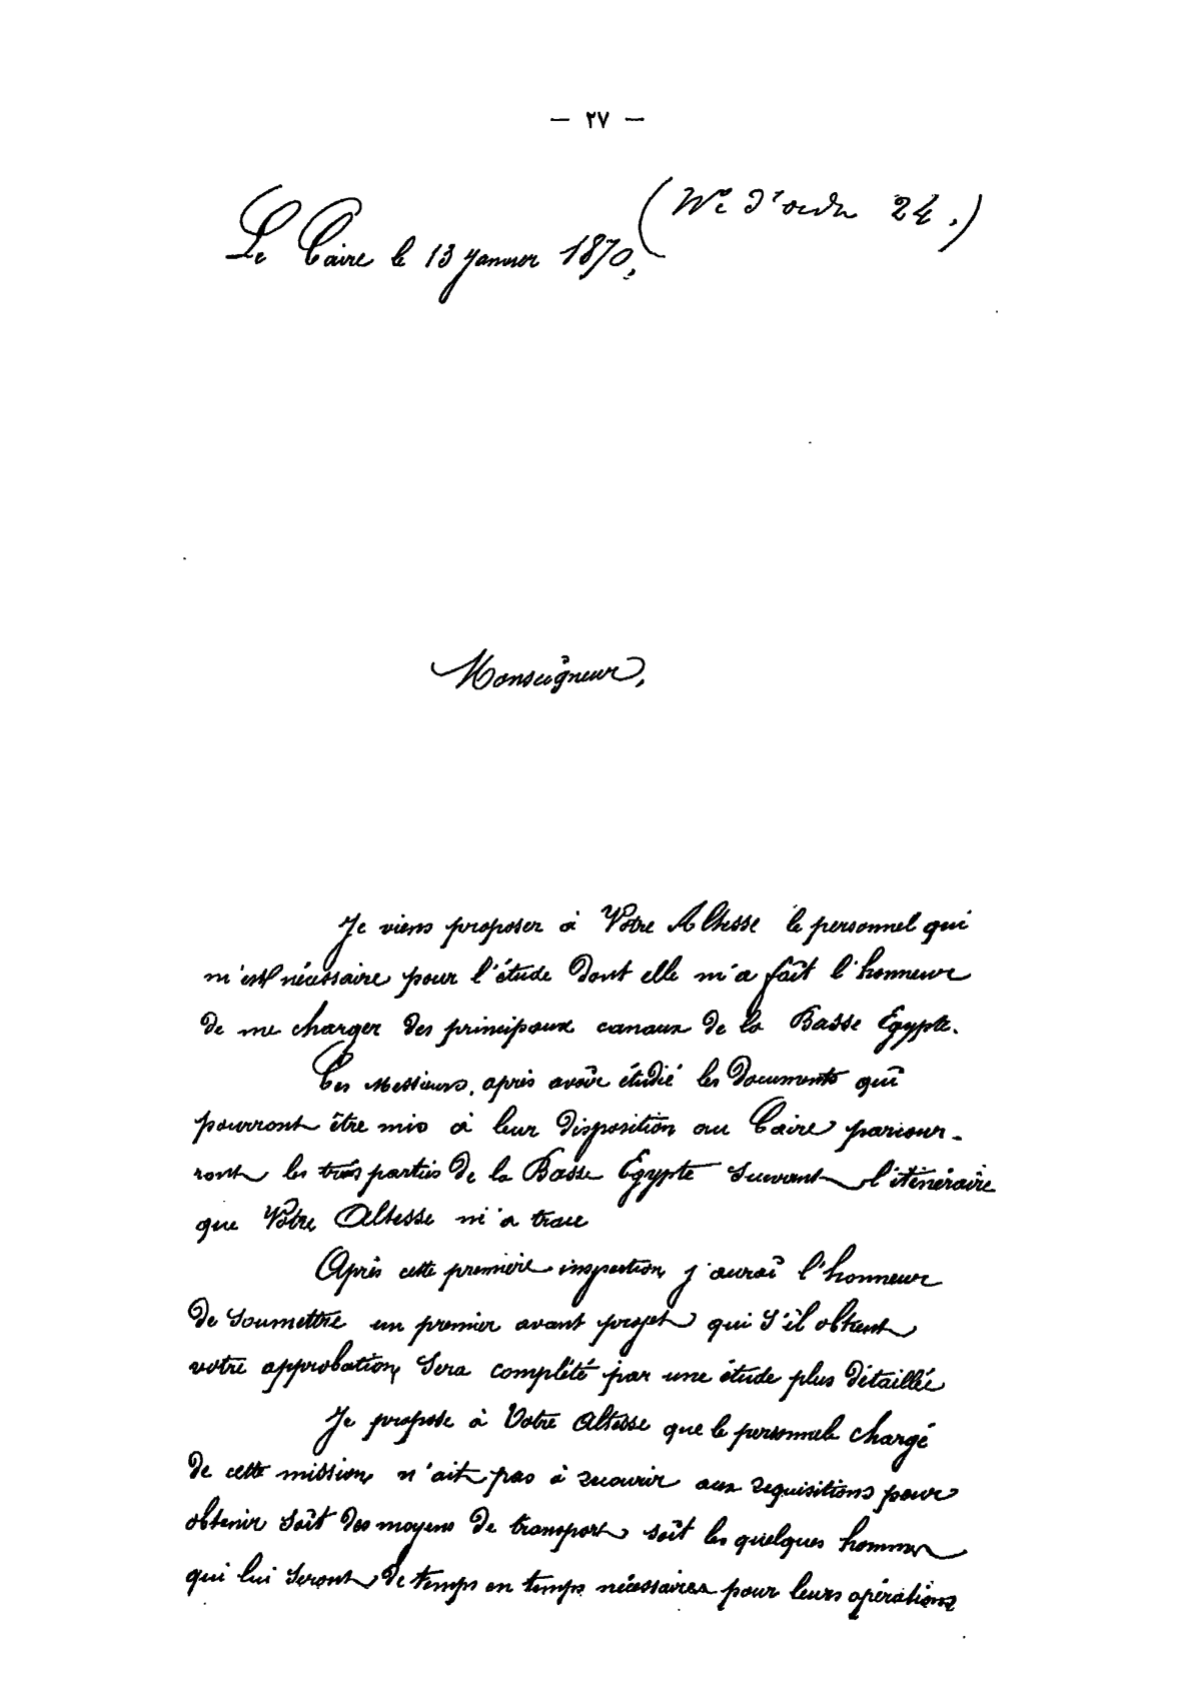 — ٢٧ —
(Nº d'ordre 24.)
Le Caire le 13 Janvier 1870,
Monseigneur,
Je viens proposer à Votre Altesse le personnel qui
m'est nécessaire pour l'étude dont elle m'a fait l'honneur
de me charger des principaux canaux de la Basse Egypte.
Ces Messieurs, après avoir étudié les documents qui
pourront être mis à leur disposition au Caire parcour-
ront les trois parties de la Basse Egypte suivant l'iténéraire
que Votre Altesse m'a tracé
Après cette première inspection j'aurai l'honneur
de soumettre un premier avant projet qui s'il obtient
votre approbation, sera complété par une étude plus détaillée
Je propose à Votre Altesse que le personnel chargé
de cette mission n'ait pas à recourir aux requisitions pour
obtenir soit des moyens de transport soit les quelques hommes
qui lui seront de temps en temps nécessaires pour leurs opérations